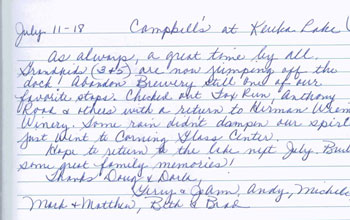 July 11-18 Campbell's at Keuka Lake (
As always, a great time by all.
Grandkids (3+5) are now jumping off the
dock! Abandon Brewery still one of our
favorite stops. Chicked out Fox Run, Anthony
Road & others with a return to Herman Wiem
Winery. Some rain didn't dampen our spirit
Just went to Corning Glass Center.
Hope to return to the lake next July. Buil
some great family memories!
Thanks Doug & Darla,
Gerry & JoAnn, Andy, Michele
Mark & Matthew, Beth & Brad